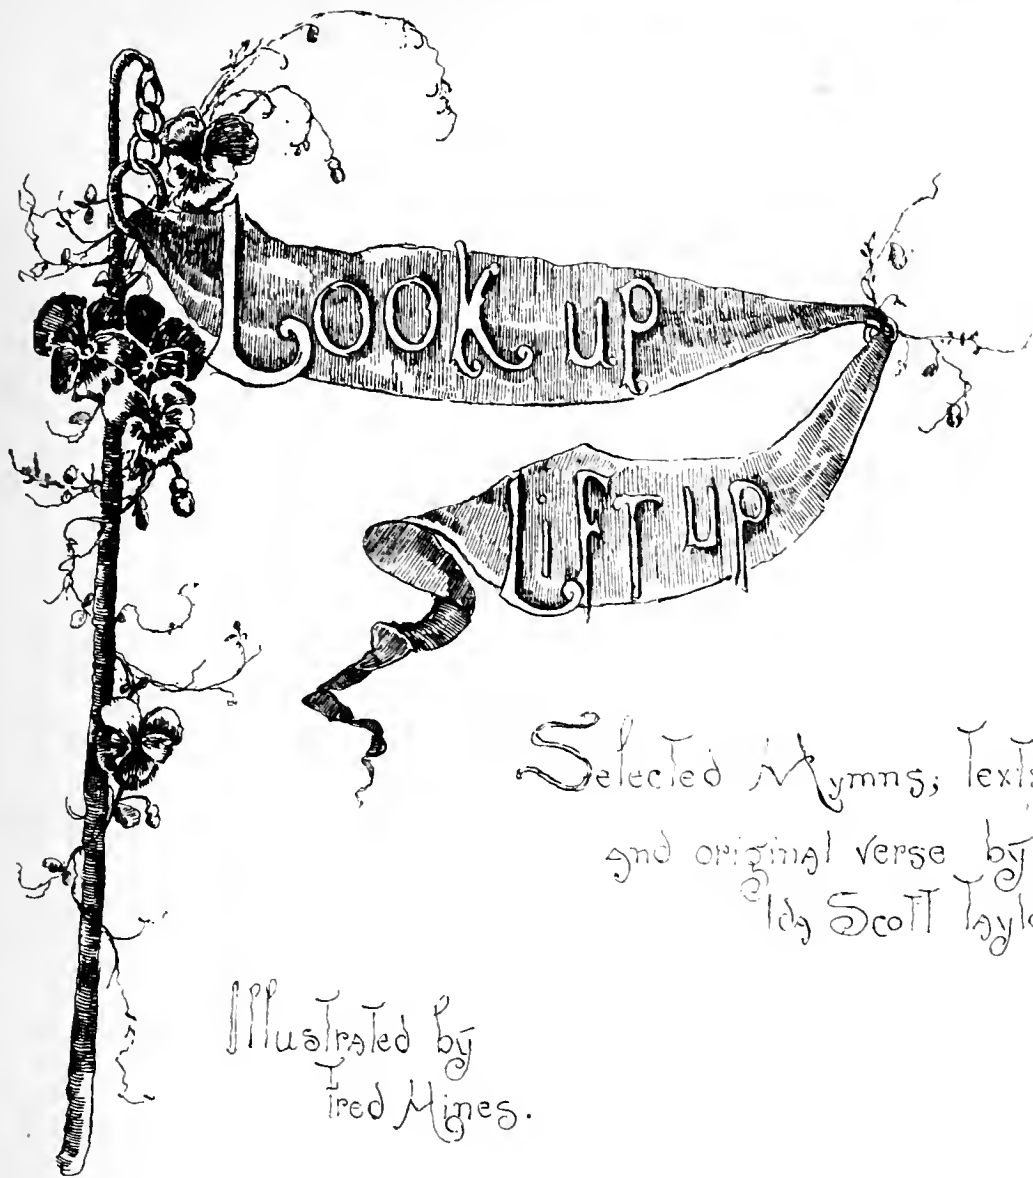 Look up
Lift up
Selected Hymns; Text
and original verse by
Ida Scott Taylo
Illustrated by
Fred Hines.